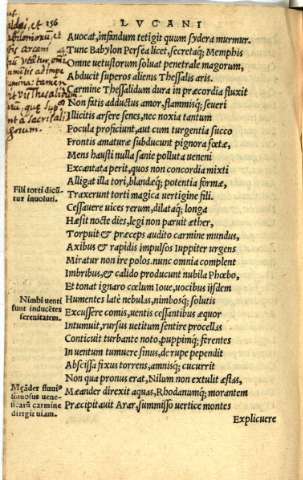 156
LVCANI
Auocat, infandum tetigit quum sydera murmur.
Tunc Babylon Persea licet, secretaq; Memphis
Omne uetustorum soluat penetrale magorum,
Abducit superos alienis Thessalis aris.
Carmine Thessalidum dura in præcordia fluxit
Non fatis adductus amor, flammisq; seueri
Illicitis arsere senes, nec noxia tantum
Pocula proficiunt, aut cum turgentia succo
Frontis amaturæ subducunt pignora fœtæ,
Mens hausti nulla sanie polluta ueneni
Excantata perit, quos non concordia mixti
Alligat illa tori, blandæq; potentia formæ,
Fili torti dicū
tur inuoluti.
Traxerunt torti magica uertigine fili.
Cessauere uices rerum, dilataq; longa
Hæsit nocte dies, legi non paruit æther,
Torpuit & præceps audito carmine mundus,
Axibus & rapidis impulsos Iuppiter urgens
Miratur non ire polos. nunc omnia complent
Imbribus, & calido producunt nubila Phœbo,
Et tonat ignaro cœlum Ioue, uocibus ijsdem
Nimbi uenti
sunt inducere
serenitatem.
Humentes late nebulas, nimbosq; solutis
Excussere comis, uentis cessantibus æquor
Intumuit, rursus uetitum sentire procellas
Conticuit turbante noto, puppimq; ferentes
In uentum tumuere sinus, de rupe pependit
Abscissa fixus torrens, amnisq; cucurrit
Non qua pronus erat, Nilum non extulit æstas,
Mæāder fluuiꝰ
uene
ficarū carmine
dirigit uiam.
Mæander direxit aquas, Rhodanumq; morantem
Præcipitauit Arar, summisso uertice montes
Explicuere